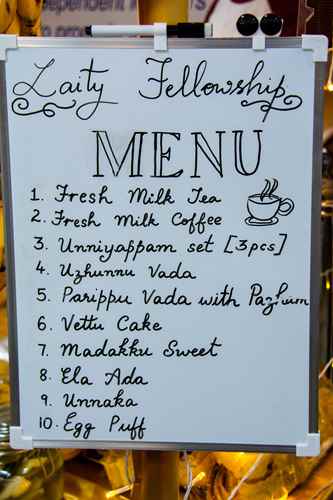 Laity Fellowship
MENU
1. Fresh Milk Tea
2. Fresh Milk Coffee
3. Unniyappam set [3pcs]
4. Uzhunnu Vada
5. Parippu Vada with Pazham
6. Vettu Cake
7. Madakku Sweet
8. Ela Ada
9. Unnaka
10. Egg Puff